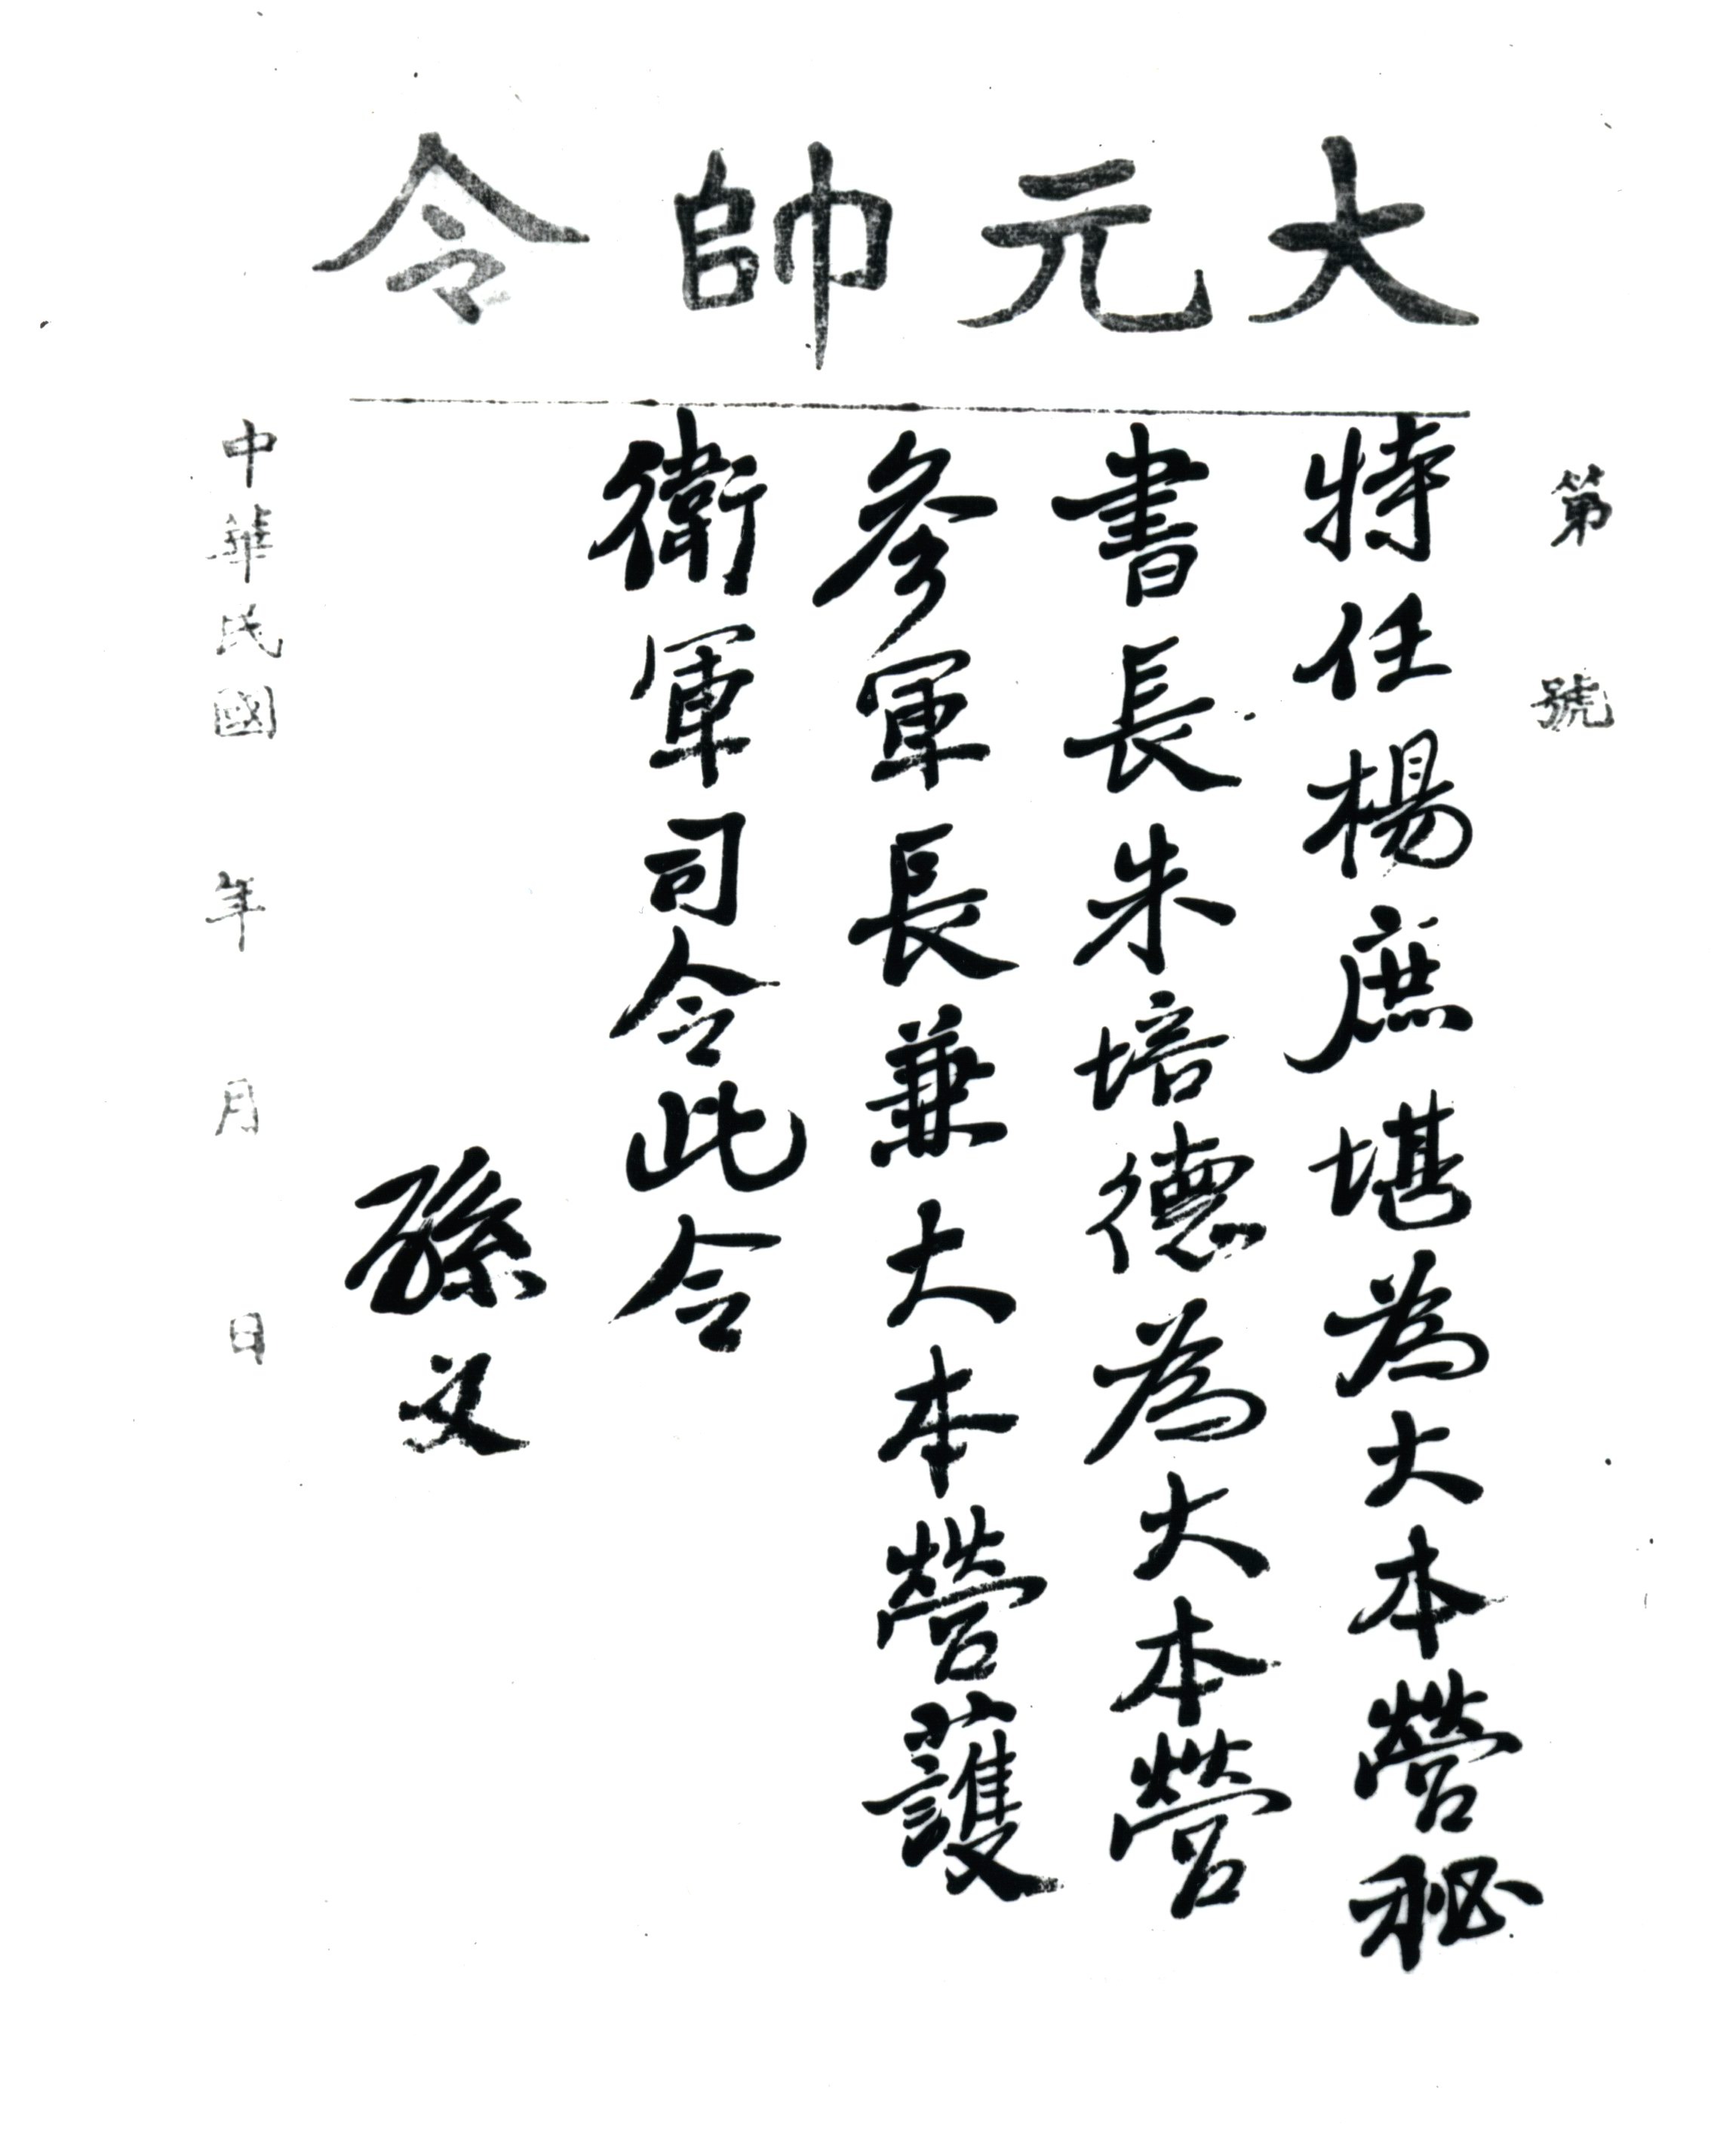 大元帥令
第　號
特任楊庶堪為大本營秘
書長朱培德為大本營
參軍長兼大本營護
衛軍司令此令
孫文
中華民國　年　月　日